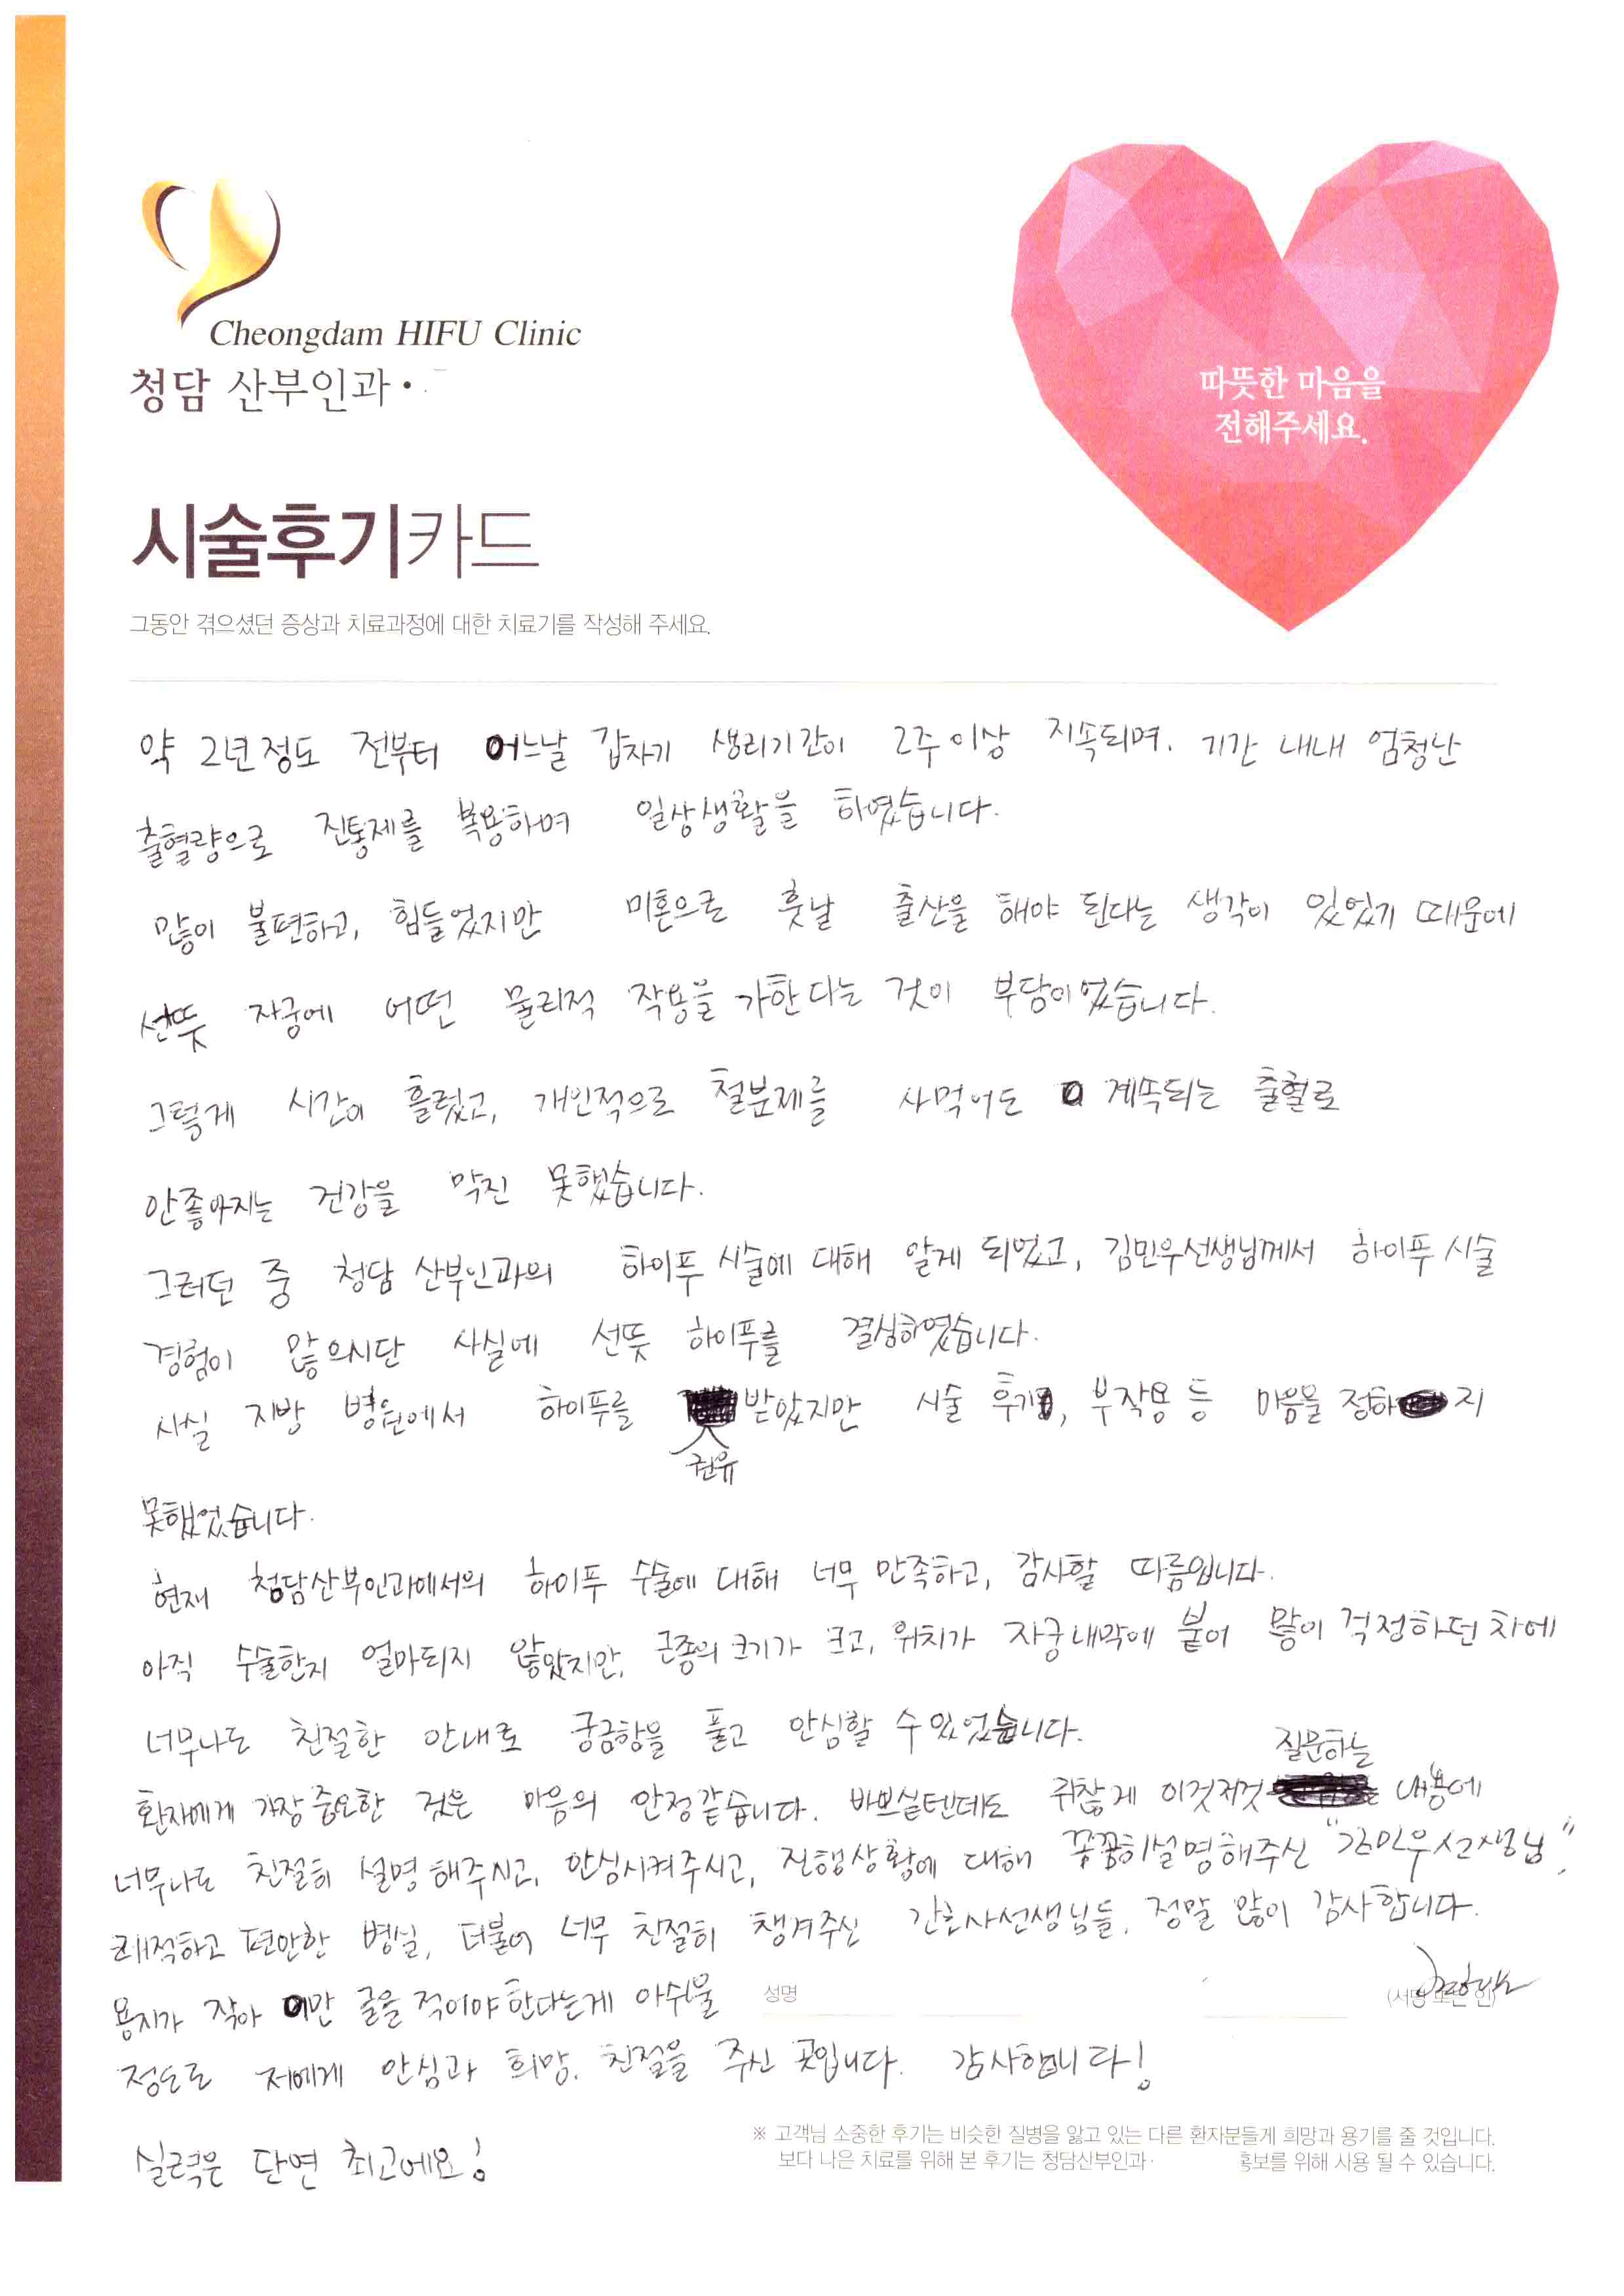 Cheongdam HIFU Clinic
청담 산부인과 •
따뜻한 마음을
전해주세요.
시술후기카드
그동안 겪으셨던 증상과 치료과정에 대한 치료기를 작성해 주세요.
약 2년정도 전부터 어느날 갑자기 생리기간이 2주이상 지속되며. 기간 내내 엄청난
출혈량으로 진통제를 복용하며 일상생활을 하였습니다.
많이 불편하고, 힘들었지만 미혼으로 훗날 출산을 해야 된다는 생각이 있었기 때문에
선뜻 자궁에 어떤 물리적 작용을 가한다는 것이 부담이었습니다.
그렇게 시간이 흘렀고, 개인적으로 철분제를 사먹어도 계속되는 출혈로
안좋아지는 건강을 막진 못했습니다.
그러던 중 청담 산부인과의 하이푸 시술에 대해 알게 되었고, 김민우선생님께서 하이푸 시술
경험이 많으시단 사실에 선뜻 하이푸를 결심하였습니다.
사실 지방 병원에서 하이푸를 권유 받았지만 시술 후기, 부작용 등 마음을 정하지
못했었습니다.
현재 청담산부인과에서의 하이푸 수술에 대해 너무 만족하고, 감사할 따름입니다.
아직 수술한지 얼마되지 않았지만, 근종의 크기가 크고, 위치가 자궁내막에 붙어 많이 걱정하던 차에
너무나도 친절한 안내로 궁금함을 풀고 안심할 수 있었습니다.
환자에게 가장 중요한 것은 마음의 안정같습니다. 바쁘실텐데도 귀찮게 이것저것 질문하는 내용에
너무나도 친절히 설명해주시고, 안심시켜주시고, 진행상황에 대해 꼼꼼히설명해주신 "김민우선생님",
쾌적하고 편안한 병실, 더불어 너무 친절히 챙겨주신 간호사선생님들, 정말 많이 감사합니다.
용지가 작아 이만 글을 적어야한다는게 아쉬울
성명 (서명 또는 인)
정도로 저에게 안심과 희망, 친절을 주신 곳입니다. 감사합니다!
실력은 단연 최고에요!
※ 고객님 소중한 후기는 비슷한 질병을 앓고 있는 다른 환자분들게 희망과 용기를 줄 것입니다.
보다 나은 치료를 위해 본 후기는 청담산부인과· 홍보를 위해 사용 될 수 있습니다.